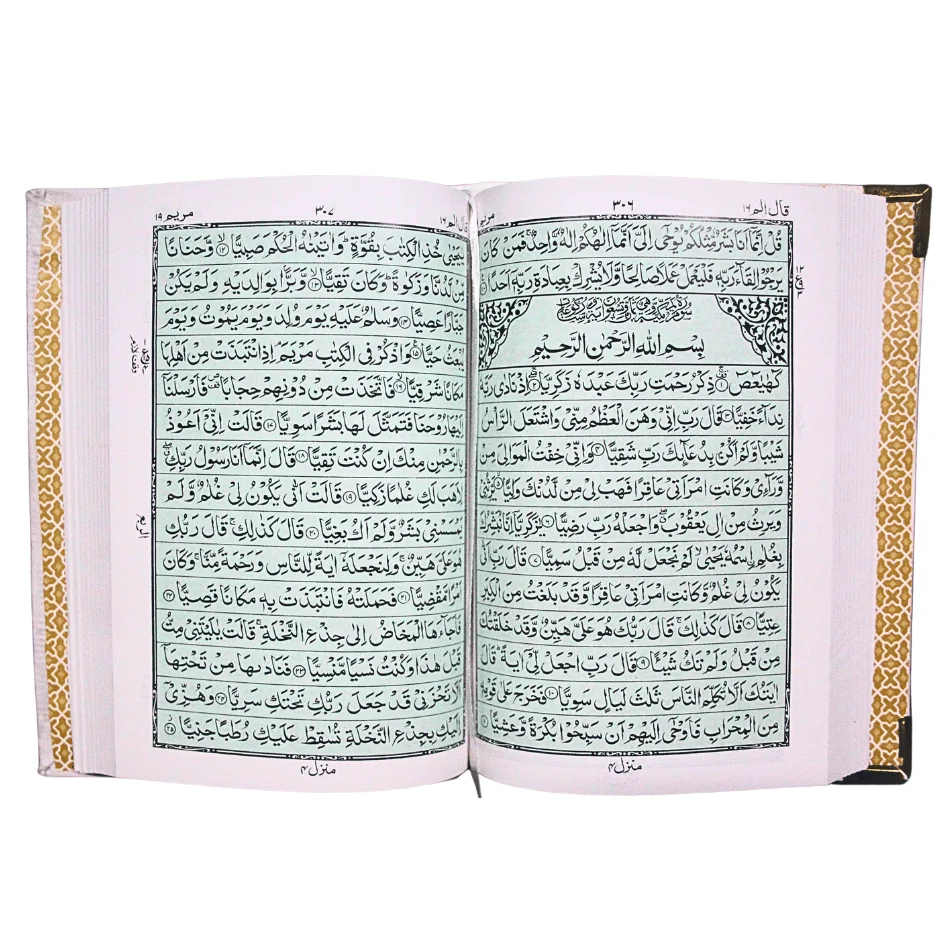 قال الم ١٦
٣٠٦
مريم
قُلْ اِنَّمَاۤ اَنَا بَشَرٌ مِّثْلُكُمْ يُوْحٰۤى اِلَيَّ اَنَّمَاۤ اِلٰهُكُمْ اِلٰهٌ وَّاحِدٌ ۚ فَمَنْ كَانَ
يَرْجُوْا لِقَآءَ رَبِّهٖ فَلْيَعْمَلْ عَمَلًا صَالِحًا وَّلَا يُشْرِكْ بِعِبَادَةِ رَبِّهٖۤ اَحَدًا
بِسْمِ اللهِ الرَّحْمٰنِ الرَّحِيْمِ
كٓهٰيٰعٓصٓ ۚ﴿١﴾ ذِكْرُ رَحْمَتِ رَبِّكَ عَبْدَهٗ زَكَرِيَّا ۚ﴿٢﴾ اِذْ نَادٰى رَبَّهٗ
نِدَآءً خَفِيًّا ﴿٣﴾ قَالَ رَبِّ اِنِّيْ وَهَنَ الْعَظْمُ مِنِّيْ وَاشْتَعَلَ الرَّاْسُ
شَيْبًا وَّلَمْ اَكُنْۢ بِدُعَآئِكَ رَبِّ شَقِيًّا ﴿٤﴾ وَاِنِّيْ خِفْتُ الْمَوَالِيَ مِنْ
وَّرَآءِيْ وَكَانَتِ امْرَاَتِيْ عَاقِرًا فَهَبْ لِيْ مِنْ لَّدُنْكَ وَلِيًّا ﴿٥﴾ يَّرِثُنِيْ
وَيَرِثُ مِنْ اٰلِ يَعْقُوْبَ ۖ وَاجْعَلْهُ رَبِّ رَضِيًّا ﴿٦﴾ يٰزَكَرِيَّاۤ اِنَّا نُبَشِّرُكَ
بِغُلٰمِ ۨاسْمُهٗ يَحْيٰى ۙ لَمْ نَجْعَلْ لَّهٗ مِنْ قَبْلُ سَمِيًّا ﴿٧﴾ قَالَ رَبِّ اَنّٰى
يَكُوْنُ لِيْ غُلٰمٌ وَّكَانَتِ امْرَاَتِيْ عَاقِرًا وَّقَدْ بَلَغْتُ مِنَ الْكِبَرِ
عِتِيًّا ﴿٨﴾ قَالَ كَذٰلِكَ ۚ قَالَ رَبُّكَ هُوَ عَلَيَّ هَيِّنٌ وَّقَدْ خَلَقْتُكَ
مِنْ قَبْلُ وَلَمْ تَكُ شَيْـًٔا ﴿٩﴾ قَالَ رَبِّ اجْعَلْ لِّيْۤ اٰيَةً ۗ قَالَ
اٰيَتُكَ اَلَّا تُكَلِّمَ النَّاسَ ثَلٰثَ لَيَالٍ سَوِيًّا ﴿١٠﴾ فَخَرَجَ عَلٰى قَوْمِهٖ
مِنَ الْمِحْرَابِ فَاَوْحٰۤى اِلَيْهِمْ اَنْ سَبِّحُوْا بُكْرَةً وَّعَشِيًّا ﴿١١﴾
منزل ٤
قال الم ١٦
٣٠٧
مريم ١٩
يٰيَحْيٰى خُذِ الْكِتٰبَ بِقُوَّةٍ ۗ وَاٰتَيْنٰهُ الْحُكْمَ صَبِيًّا ۙ﴿١٢﴾ وَّحَنَانًا
مِّنْ لَّدُنَّا وَزَكٰوةً ۗ وَكَانَ تَقِيًّا ۙ﴿١٣﴾ وَّبَرًّاۢ بِوَالِدَيْهِ وَلَمْ يَكُنْ
جَبَّارًا عَصِيًّا ﴿١٤﴾ وَسَلٰمٌ عَلَيْهِ يَوْمَ وُلِدَ وَيَوْمَ يَمُوْتُ وَيَوْمَ
يُبْعَثُ حَيًّا ﴿١٥﴾ وَاذْكُرْ فِي الْكِتٰبِ مَرْيَمَ ۘ اِذِ انْتَبَذَتْ مِنْ اَهْلِهَا
مَكَانًا شَرْقِيًّا ۙ﴿١٦﴾ فَاتَّخَذَتْ مِنْ دُوْنِهِمْ حِجَابًا ۪ فَاَرْسَلْنَاۤ
اِلَيْهَا رُوْحَنَا فَتَمَثَّلَ لَهَا بَشَرًا سَوِيًّا ﴿١٧﴾ قَالَتْ اِنِّيْۤ اَعُوْذُ
بِالرَّحْمٰنِ مِنْكَ اِنْ كُنْتَ تَقِيًّا ﴿١٨﴾ قَالَ اِنَّمَاۤ اَنَا رَسُوْلُ رَبِّكِ ۖ
لِاَهَبَ لَكِ غُلٰمًا زَكِيًّا ﴿١٩﴾ قَالَتْ اَنّٰى يَكُوْنُ لِيْ غُلٰمٌ وَّلَمْ
يَمْسَسْنِيْ بَشَرٌ وَّلَمْ اَكُ بَغِيًّا ﴿٢٠﴾ قَالَ كَذٰلِكِ ۚ قَالَ رَبُّكِ
هُوَ عَلَيَّ هَيِّنٌ ۚ وَلِنَجْعَلَهٗۤ اٰيَةً لِّلنَّاسِ وَرَحْمَةً مِّنَّا ۚ وَكَانَ
اَمْرًا مَّقْضِيًّا ﴿٢١﴾ فَحَمَلَتْهُ فَانْتَبَذَتْ بِهٖ مَكَانًا قَصِيًّا ﴿٢٢﴾
فَاَجَآءَهَا الْمَخَاضُ اِلٰى جِذْعِ النَّخْلَةِ ۚ قَالَتْ يٰلَيْتَنِيْ مِتُّ
قَبْلَ هٰذَا وَكُنْتُ نَسْيًا مَّنْسِيًّا ﴿٢٣﴾ فَنَادٰىهَا مِنْ تَحْتِهَاۤ
اَلَّا تَحْزَنِيْ قَدْ جَعَلَ رَبُّكِ تَحْتَكِ سَرِيًّا ﴿٢٤﴾ وَهُزِّيْۤ
اِلَيْكِ بِجِذْعِ النَّخْلَةِ تُسٰقِطْ عَلَيْكِ رُطَبًا جَنِيًّا ﴿٢٥﴾
منزل ٤
وقف لازم
الربع